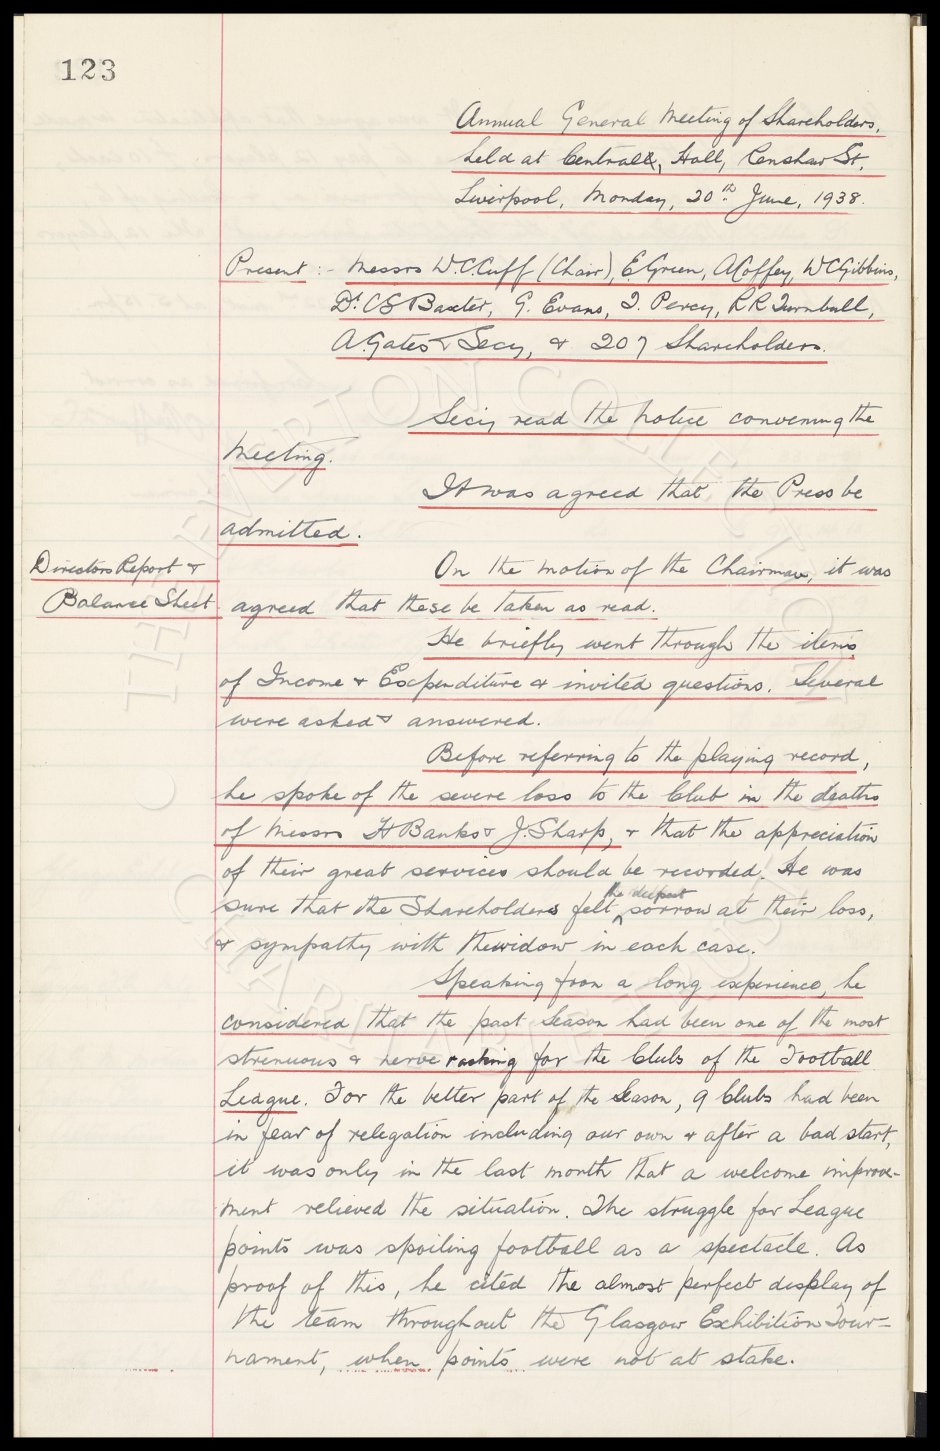 123
Annual General Meeting of Shareholders,
held at Central, Hall, Renshaw St,
Liverpool, Monday, 20th June, 1938.
Present :- Messrs W.C. Cuff (Chair), E. Green, A Coffey, W C Gibbins,
Dr. C S Baxter, G. Evans, T. Percy, R R Turnbull,
A. Gates & Secy, & 207 Shareholders.
Secy read the Notice convening the
Meeting.
It was agreed that the Press be
admitted.
Directors Report &
Balance Sheet
On the motion of the Chairman, it was
agreed that these be taken as read.
He briefly went through the items
of Income & Expenditure & invited questions. Several
were asked & answered.
Before referring to the playing record,
he spoke of the severe loss to the Club in the deaths
of Messrs H Banks & J. Sharp, & that the appreciation
of their great services should be recorded. He was
sure that the Shareholders felt the deepest sorrow at their loss,
& sympathy with the widow in each case.
Speaking from a long experience, he
considered that the past Season had been one of the most
strenuous & nerve racking for the Clubs of the Football
League. For the better part of the Season, 9 Clubs had been
in fear of relegation including our own & after a bad start,
it was only in the last month that a welcome improve-
ment relieved the situation. The struggle for League
points was spoiling football as a spectacle. As
proof of this, he cited the almost perfect display of
the team throughout the Glasgow Exhibition Tour-
nament, when points were not at stake.
THE EVERTON COLLECTION
CHARITABLE TRUST